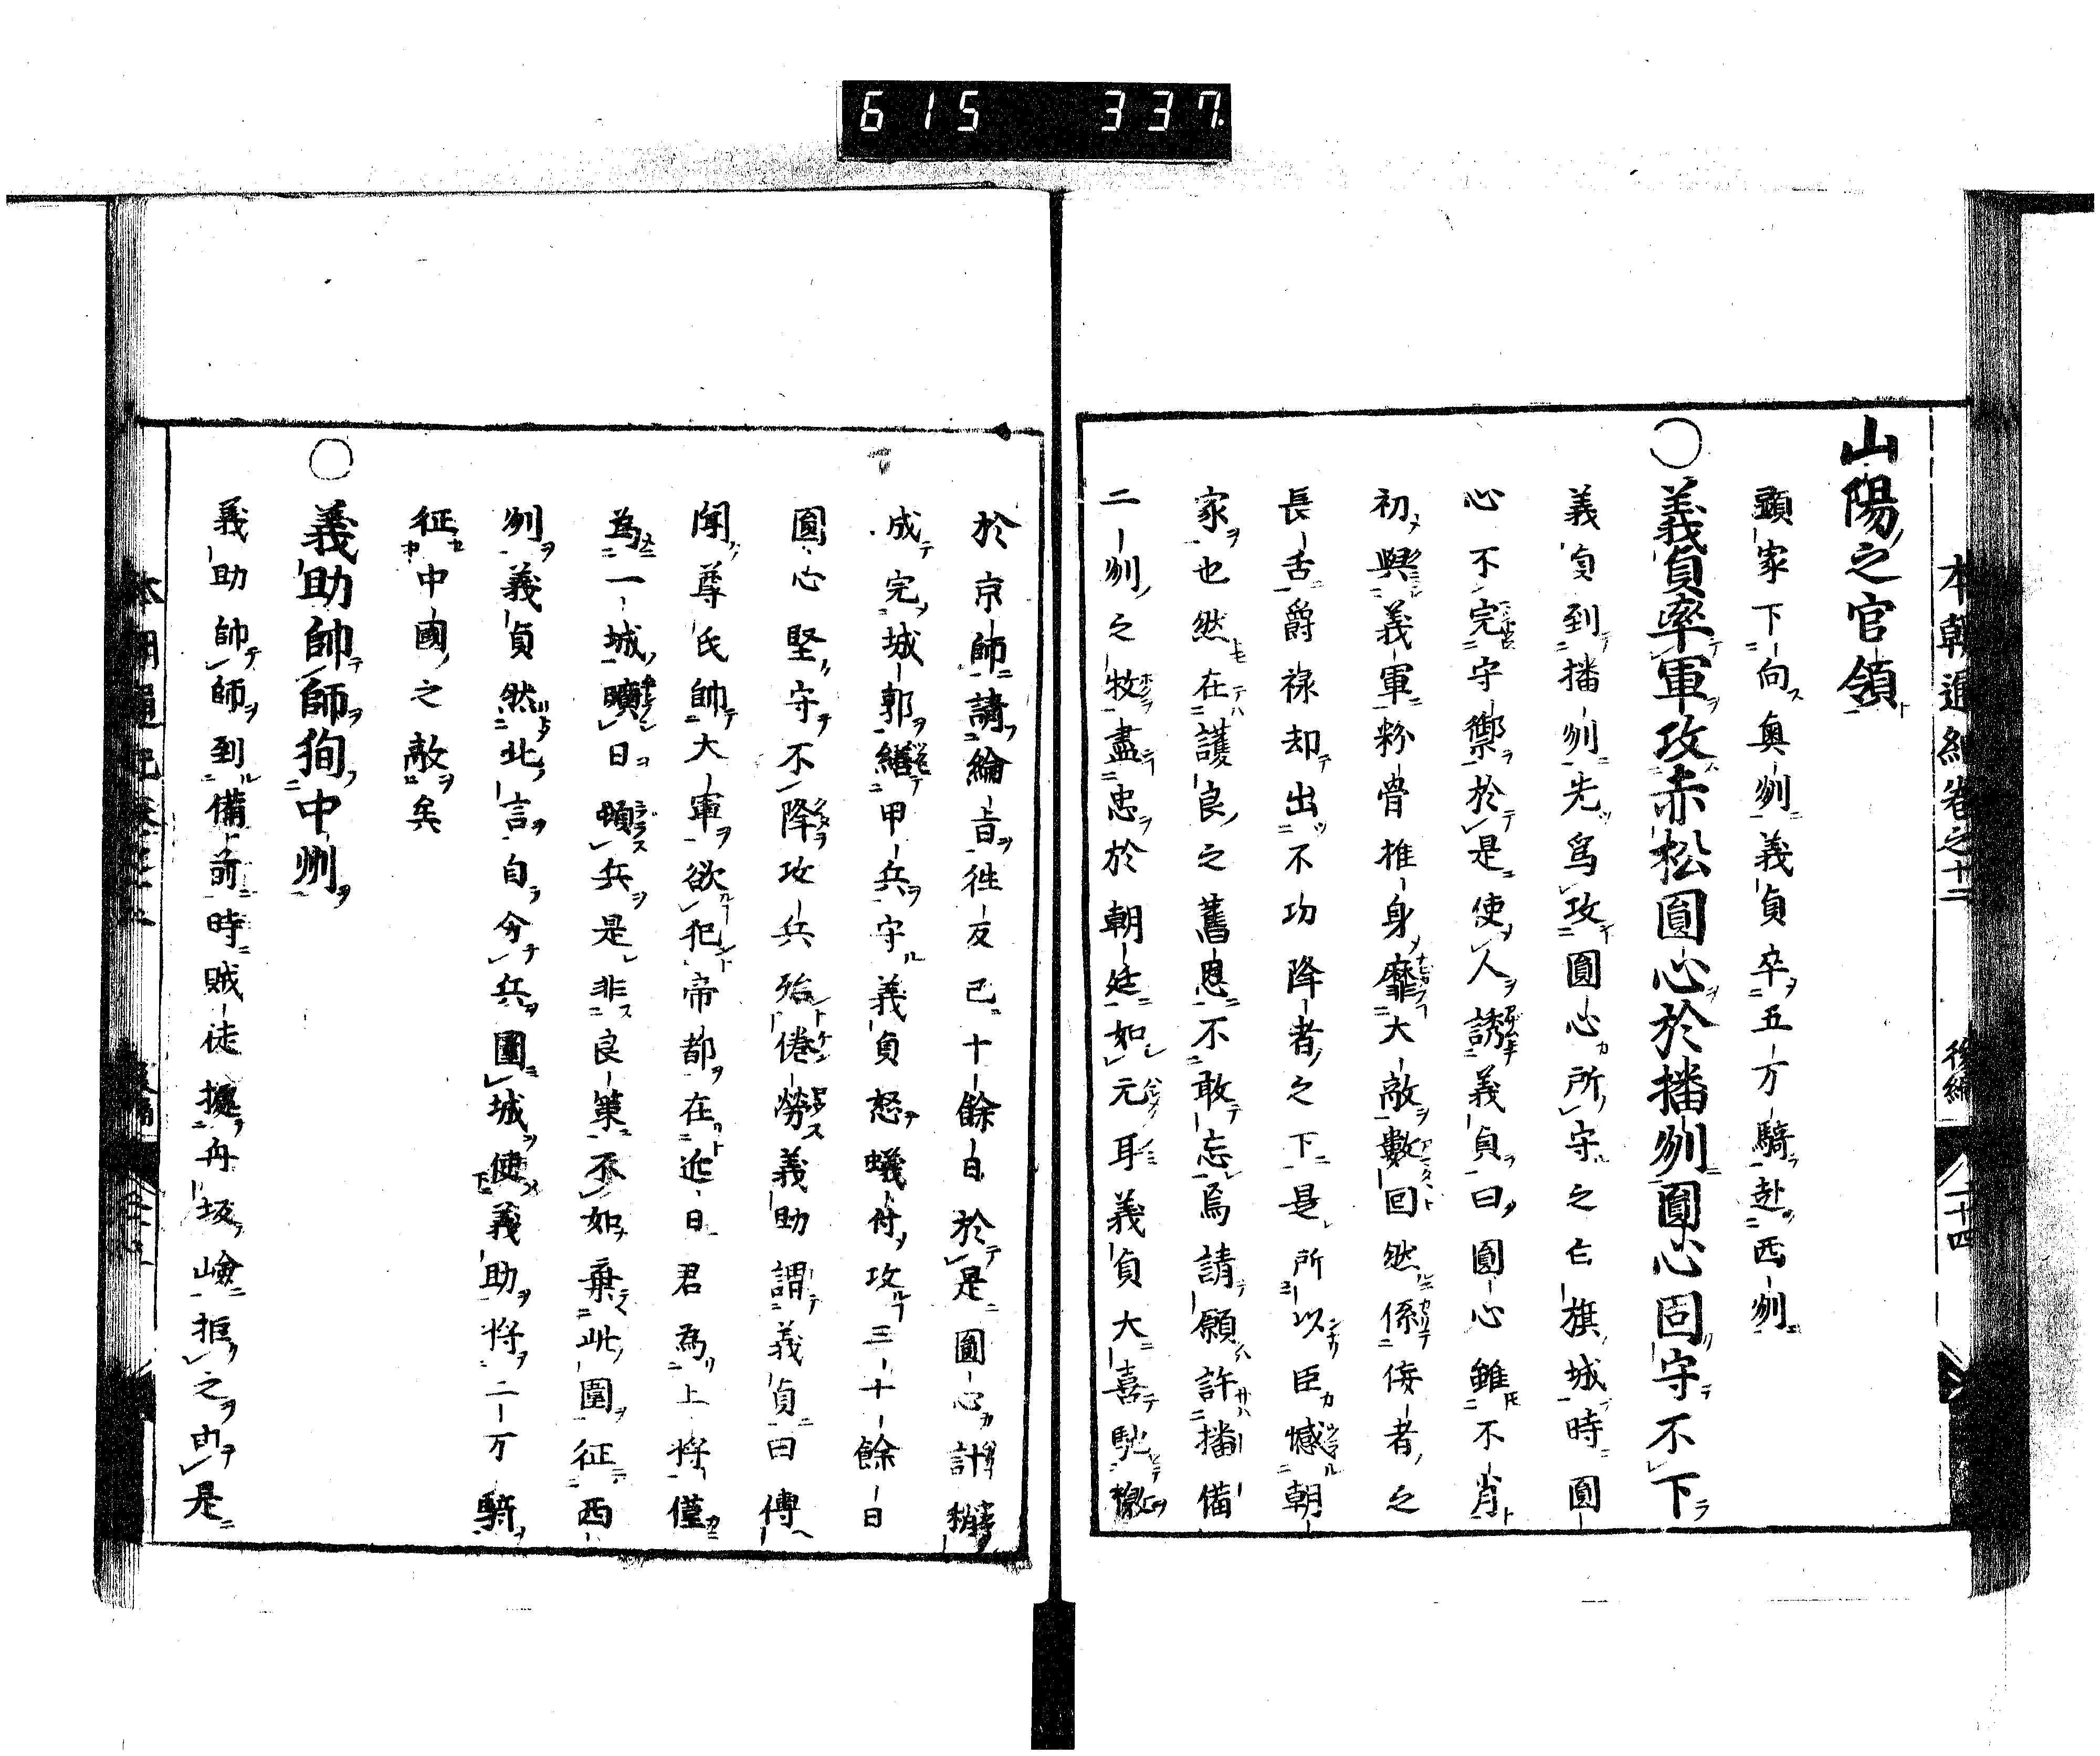 615 337.
本朝通紀卷之十二 後編 二十四
山陽之官領
顯家下向奧州義貞卒五万騎赴西州
○義貞率軍攻赤松圓心於播州圓心固守不下
義貞到播州先爲攻圓心所守之白旗城時圓
心不完守禦於是使人誘義貞曰圓心雖不肖
初興義軍粉骨推身靡大敵數回然係倿者之
長舌爵祿却出不功降者之下是所以臣憾朝
家也然在護良之舊恩不敢忘焉請願許播備
二州之牧盡忠於朝廷如元耳義貞大喜馳檄
於京師請綸旨徃反已十餘日於是圓心計
成完城郭繕甲兵守義貞怒蟻付攻三十餘日
圓心堅守不降攻兵殆倦勞義助謂義貞曰傳
聞尊氏帥大軍欲犯帝都在近日君為上將僅
為一城曠日頓兵是非良策不如棄此圍征西
州義貞然此言自分兵圍城使義助將二万騎
征中國之敵矣
○義助帥師狥中州
義助帥師到備前時賊徒據舟坂嶮拒之由是